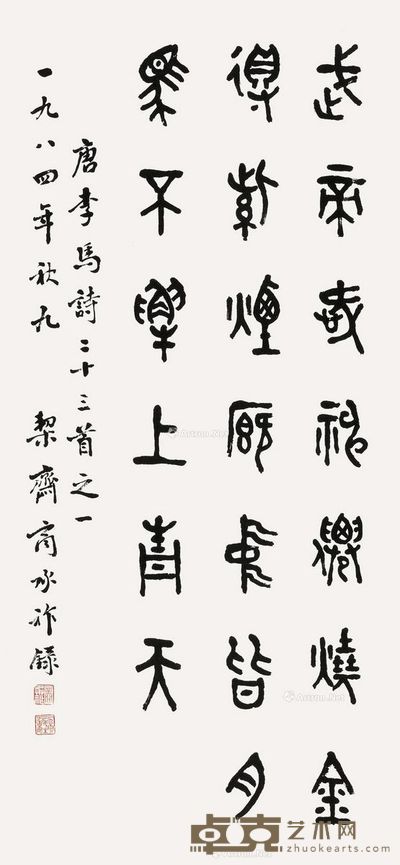 武帝愛神僊燒金
得紫煙廄中皆肉
馬不解上青天
唐李馬詩二十三首之一
一九八四年秋九 栔齋商承祚錄
Artron.Net
卓克艺术网
zhuokearts.com